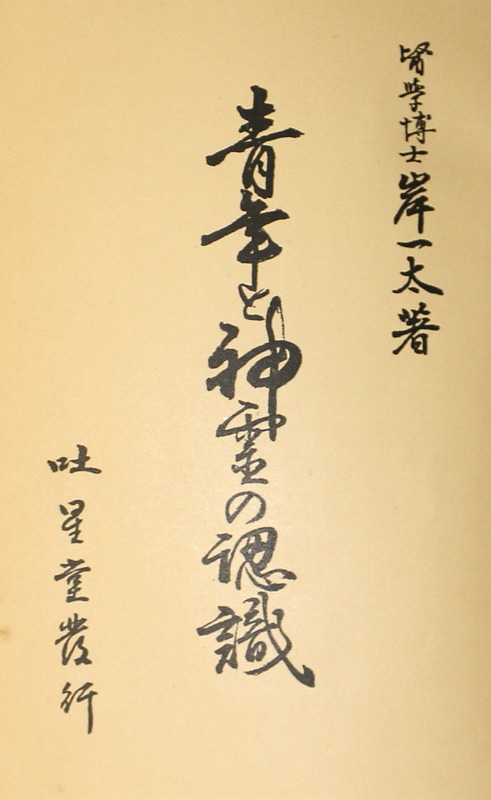 醫學博士岸一太著
青年と神靈の認識
吐星堂發行